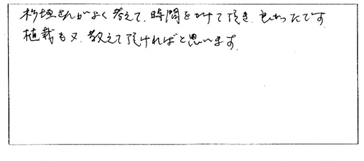 杉垣さんがよく答えて、時間をかけて頂き、良かったです
植栽も又、教えて頂ければと思います。